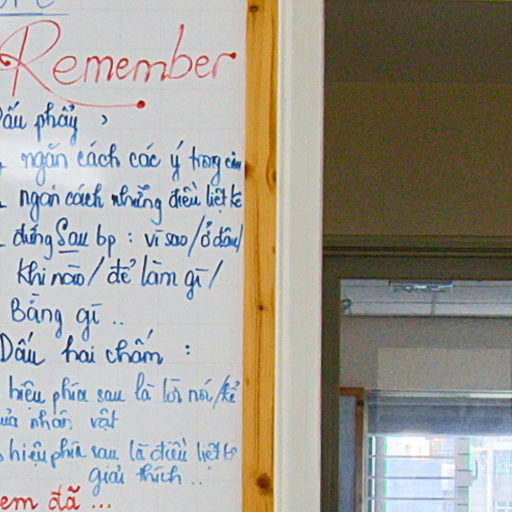 Remember
Dấu phẩy ,
ngăn cách các ý trong câu
ngăn cách những điều liệt kê
- đứng Sau bp : vì sao / ở đâu /
khi nào / để làm gì /
Bằng gì ..
Dấu hai chấm :
hiệu phía sau là lời nói / kể
của nhân vật
hiệu phía sau là điều liệt kê
giải thích ..
em đã ...